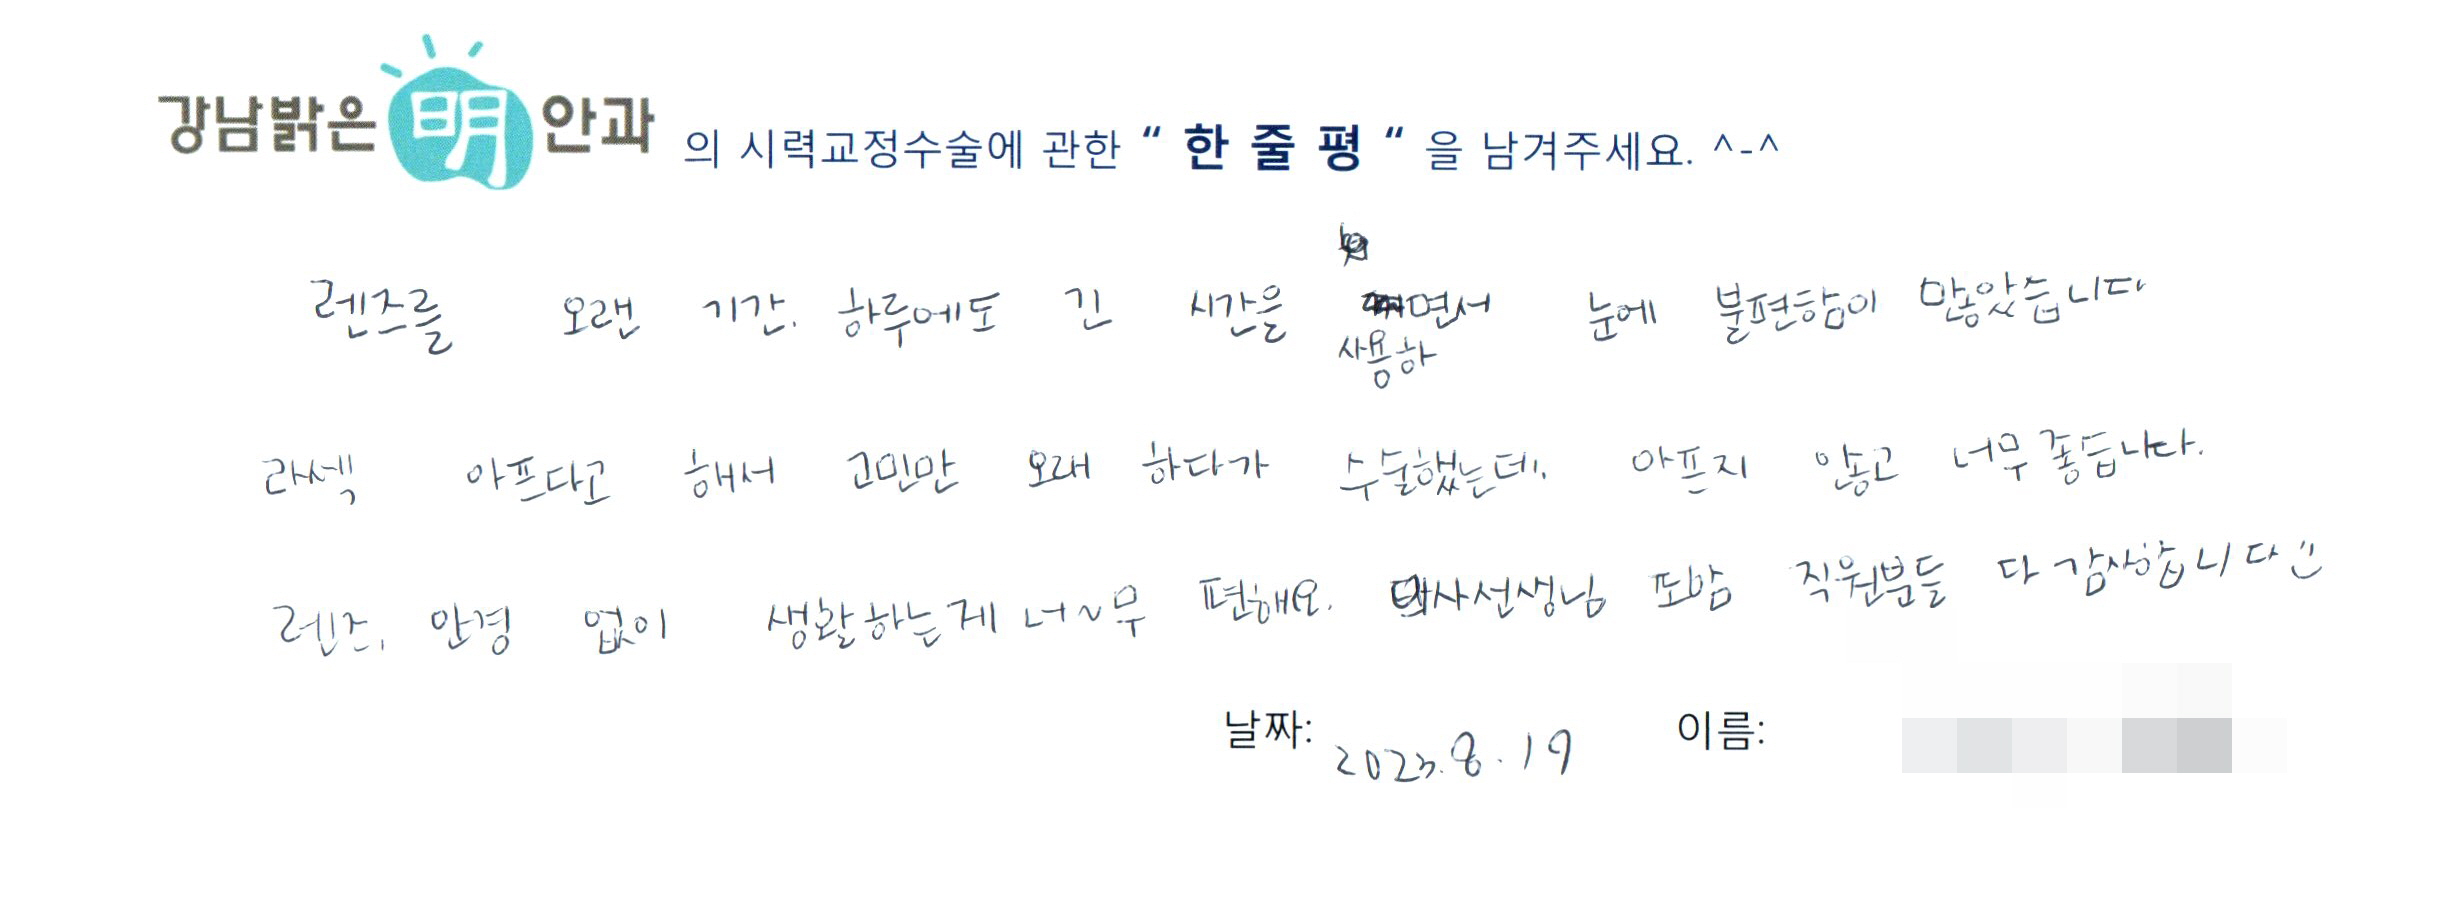 강남밝은 明 안과 의 시력교정수술에 관한 “ 한 줄 평 “ 을 남겨주세요. ^-^
렌즈를 오랜 기간, 하루에도 긴 시간을 사용하면서 눈에 불편함이 많았습니다
라섹 아프다고 해서 고민만 오래 하다가 수술했는데, 아프지 않고 너무 좋습니다.
렌즈, 안경 없이 생활하는게 너~무 편해요. 의사선생님 포함 직원분들 다 감사합니다
날짜: 2023.8.19 이름: